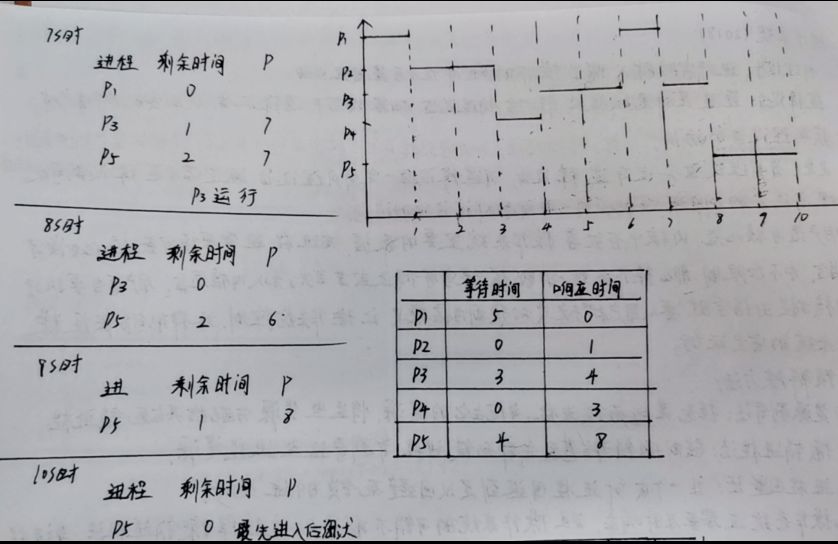 7s时
进程 剩余时间 P
P1 0
P3 1 7
P5 2 7
P3运行
8s时
进程 剩余时间 P
P3 0
P5 2 6
9s时
进 剩余时间 P
P5 1 8
10s时
进程 剩余时间 P
P5 0
P1
P2
P3
P4
P5
1 2 3 4 5 6 7 8 9 10
等待时间 响应时间
P1 5 0
P2 0 1
P3 3 4
P4 0 3
P5 4 8